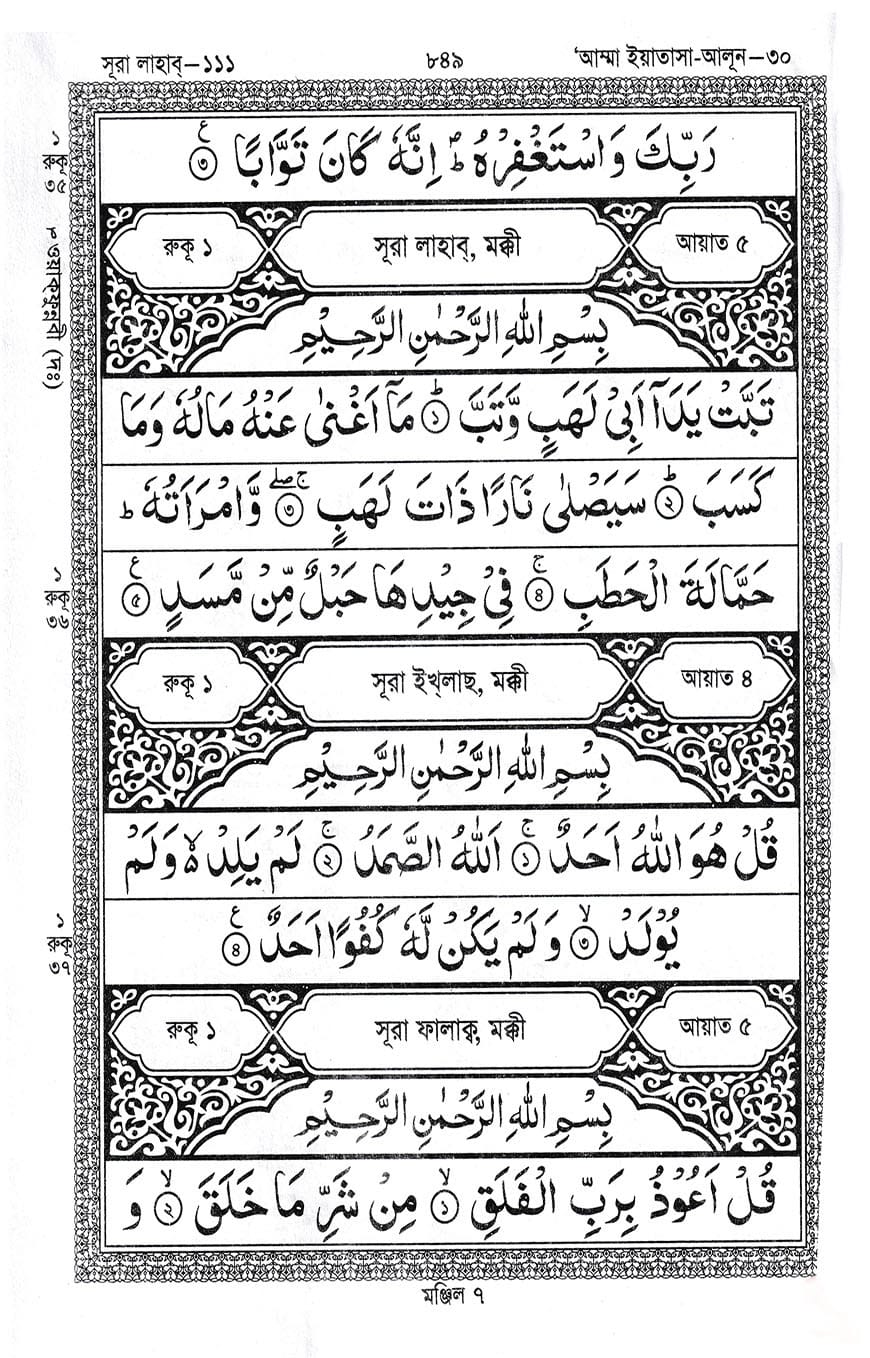 সূরা লাহাব্—১১১ ৮৪৯ ‘আম্মা ইয়াতাসা-আলূন—৩০
رَبِّكَ وَاسْتَغْفِرْهُ ؕ اِنَّهٗ كَانَ تَوَّابًا ۝۳ ع
১
রুকূ
৩৫
রুকূ ১ সূরা লাহাব্, মক্কী আয়াত ৫
بِسْمِ اللّٰهِ الرَّحْمٰنِ الرَّحِيْمِ
تَبَّتْ يَدَاۤ اَبِىْ لَهَبٍ وَّتَبَّ ؕ۝۱ مَاۤ اَغْنٰى عَنْهُ مَالُهٗ وَمَا
كَسَبَ ؕ۝۲ سَيَصْلٰى نَارًا ذَاتَ لَهَبٍ ۚۖ۝۳ وَّامْرَاَتُهٗ ؕ
حَمَّالَةَ الْحَطَبِ ۚ۝۴ فِىْ جِيْدِهَا حَبْلٌ مِّنْ مَّسَدٍ ۝۵ ع
১
রুকূ
৩৬
রুকূ ১ সূরা ইখ্‌লাছ, মক্কী আয়াত ৪
بِسْمِ اللّٰهِ الرَّحْمٰنِ الرَّحِيْمِ
قُلْ هُوَ اللّٰهُ اَحَدٌ ۚ۝۱ اَللّٰهُ الصَّمَدُ ۚ۝۲ لَمْ يَلِدْ ۙ۬ وَلَمْ
يُوْلَدْ ۙ۝۳ وَلَمْ يَكُنْ لَّهٗ كُفُوًا اَحَدٌ ۝۴ ع
১
রুকূ
৩৭
রুকূ ১ সূরা ফালাক্ব, মক্কী আয়াত ৫
بِسْمِ اللّٰهِ الرَّحْمٰنِ الرَّحِيْمِ
قُلْ اَعُوْذُ بِرَبِّ الْفَلَقِ ۙ۝۱ مِنْ شَرِّ مَا خَلَقَ ۙ۝۲ وَ
মঞ্জিল ৭